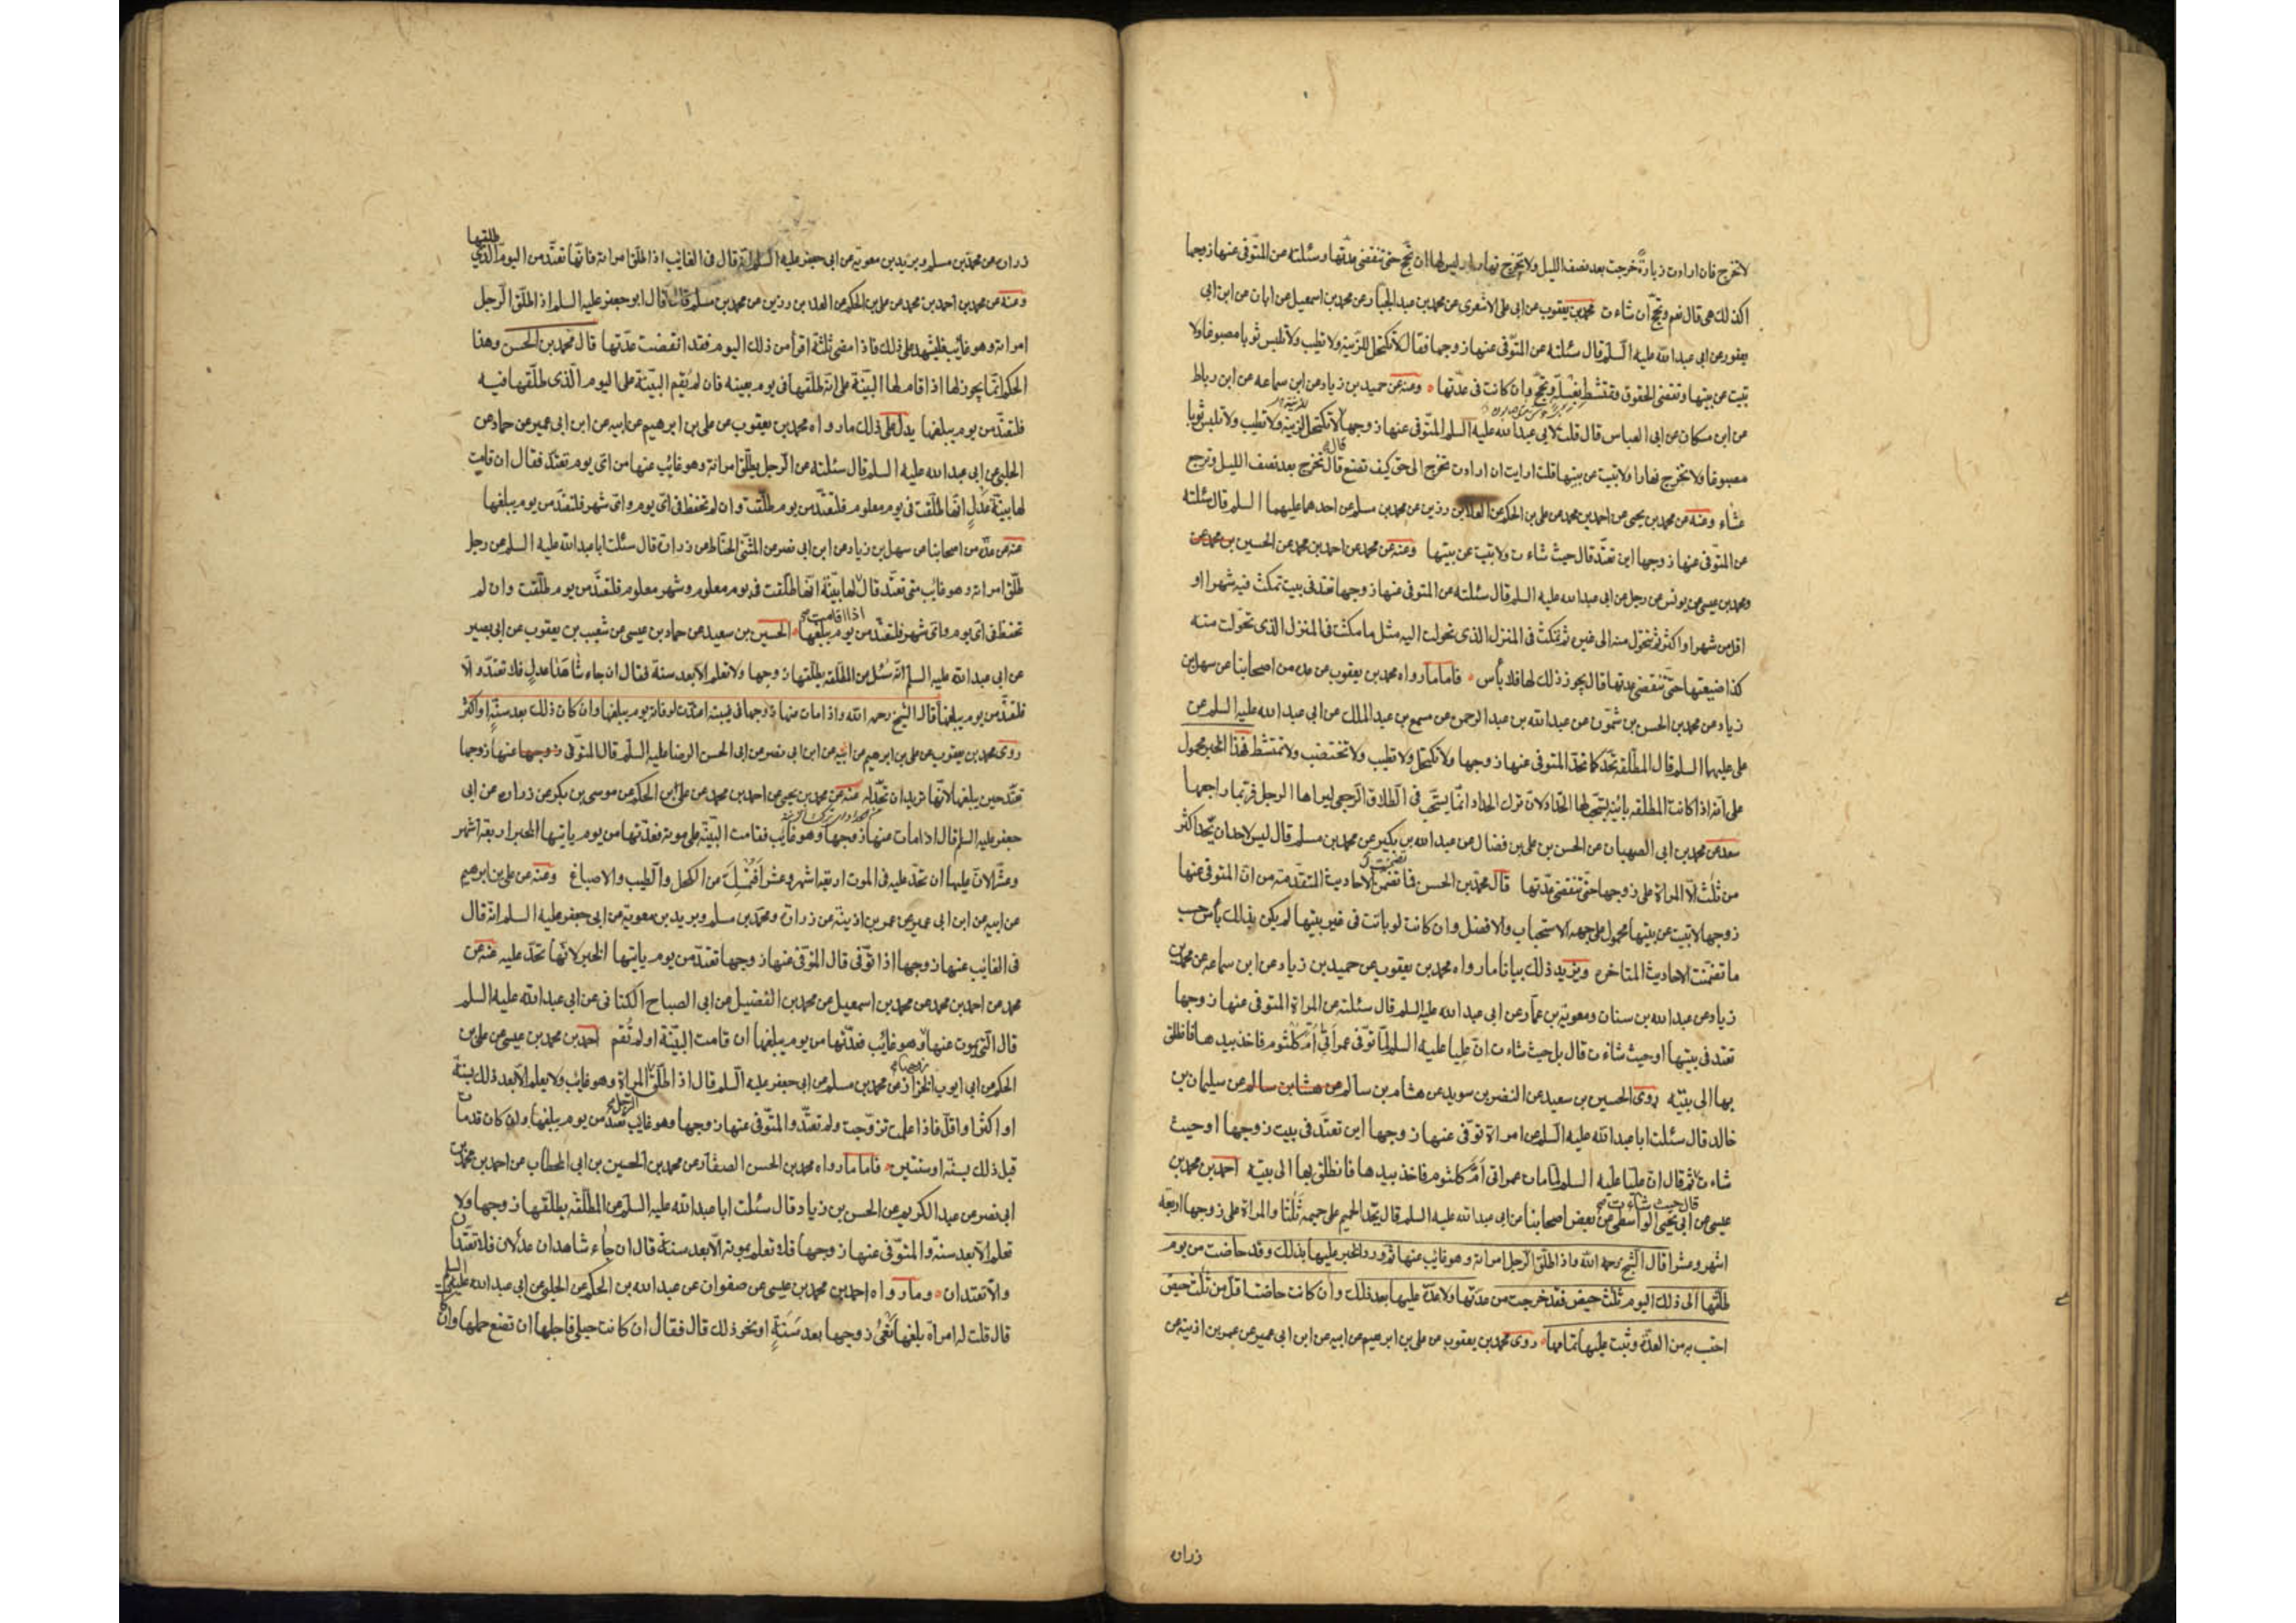 لا تخرج فان ارادت زيارة خرجت بعد نصف الليل ولا تخرج نهارا وليس لها ان تحج حتى تنقضى عدتها وسئلته عن المتوفى عنها زوجها
اكذلك هى قال نعم وتحج ان شاءت محمد بن يعقوب عن ابى على الاشعرى عن محمد بن عبد الجبار عن محمد بن اسمعيل عن ابان عن ابن ابى
يعفور عن ابى عبد الله عليه السلم قال سئلته عن المتوفى عنها زوجها فقال لا تكتحل للزينة ولا تطيب ولا تلبس ثوبا مصبوغا ولا
تبيت عن بيتها وتقضى الحقوق وتمتشط بغسلة وتحج وان كانت فى عدتها ومنه عن حميد بن زياد عن ابن سماعه عن ابن رباط
عن ابن مسكان عن ابى العباس قال قلت لابى عبد الله عليه السلم المتوفى عنها زوجها قال لا تكتحل لزينة ولا تطيب ولا تلبس ثوبا
مصبوغا ولا تخرج نهارا ولا تبيت عن بيتها قلت ارايت ان ارادت تخرج الى حق كيف تصنع قال تخرج بعد نصف الليل وترجع
عشاء ومنه عن محمد بن يحيى عن احمد بن محمد عن على بن الحكم عن العلا بن رزين عن محمد بن مسلم عن احدهما عليهما السلم قال سئلته
عن المتوفى عنها زوجها اين تعتد قال حيث شاءت ولا تبيت عن بيتها ومنه عن محمد عن احمد بن محمد عن الحسين بن محمد عن
محمد بن عيسى عن يونس عن رجل عن ابى عبد الله عليه السلم قال سئلته عن المتوفى عنها زوجها تعتد فى بيت تمكث فيه شهرا او
اقل من شهر او اكثر ثم تتحول منه الى غيره ثم تمكث فى المنزل الذى تحولت اليه مثل ما مكثت فى المنزل الذى تحولت منه
كذا صنيعها حتى تنقضى عدتها قال يجوز ذلك لها فلا بأس فاما ما رواه محمد بن يعقوب عن عده من اصحابنا عن سهل بن
زياد عن محمد بن الحسن بن شمون عن عبد الله بن عبد الرحمن عن مسمع بن عبد الملك عن ابى عبد الله عليه السلم عن
على عليهما السلم قال المطلقه تحد كما تحد المتوفى عنها زوجها ولا تكتحل ولا تطيب ولا تختضب ولا تمتشط فهذا الخبر محمول
على انه اذا كانت المطلقه باينه يستحب لها الحداد لان ترك الحداد انما يستحب فى الطلاق الرجعى ليراها الرجل فربما راجعها
سعد عن محمد بن ابى الصهبان عن الحسن بن على بن فضال عن عبد الله بن بكير عن محمد بن مسلم قال ليس لاحد ان يحد اكثر
من ثلث الا المراة على زوجها حتى تنقضى عدتها قال محمد بن الحسن فما تضمن الاحاديث المتقدمة من ان المتوفى عنها
زوجها لا تبيت عن بيتها محمول على جهه الاستحباب والافضل وان كانت لو باتت فى غير بيتها لم يكن بذلك بأس حسب
ما تضمنت الاحاديث المتاخره ويزيد ذلك بيانا ما رواه محمد بن يعقوب عن حميد بن زياد عن ابن سماعه عن محمد بن
زياد عن عبد الله بن سنان ومعوية بن عمار عن ابى عبد الله عليه السلم قال سئلته عن المراة المتوفى عنها زوجها
تعتد فى بيتها او حيث شاءت قال بل حيث شاءت ان عليا عليه السلم لما توفى عمر اتى ام كلثوم فاخذ بيدها فانطلق
بها الى بيته روى الحسين بن سعيد عن النضر بن سويد عن هشام بن سالم عن هشام بن سالم عن سليمان بن
خالد قال سئلت ابا عبد الله عليه السلم عن امراة توفى عنها زوجها اين تعتد فى بيت زوجها او حيث
شاءت ثم قال ان عليا عليه السلم لما مات عمر اتى ام كلثوم فاخذ بيدها فانطلق بها الى بيته احمد بن محمد بن
قال حيث شاءت صح
عيسى عن ابى يحيى الواسطى عن بعض اصحابنا عن ابى عبد الله عليه السلم قال يحد الحميم على حميمه ثلثا والمراة على زوجها اربعة
اشهر وعشرا قال الشيخ رحمه الله واذا طلق الرجل امراته وهو غايب عنها ثم ورد الخبر عليها بذلك وقد حاضت من يوم
طلقها الى ذلك اليوم ثلث حيض فقد خرجت من عدتها ولا عدة عليها بعد ذلك وان كانت حاضت اقل من ثلث حيض
احتسب به من العدة وثبت عليها تمامها روى محمد بن يعقوب عن على بن ابرهيم عن ابيه عن ابن ابى عمير عن عمر بن اذينه عن
زراره
طلقها
زراره عن محمد بن مسلم وبريد بن معوية عن ابى جعفر عليه السلم انه قال فى الغايب اذا طلق امراته فانها تعتد من اليوم الذى
ومنه عن محمد بن احمد بن محمد عن على بن الحكم عن العلا بن رزين عن محمد بن مسلم قال قال ابو جعفر عليه السلم اذا طلق الرجل
امراته وهو غايب فليشهد على ذلك فاذا مضى ثلثة اقرأ من ذلك اليوم فقد انقضت عدتها قال محمد بن الحسن وهذا
الحكم انما يجوز لها اذا قام لها البينة على انه طلقها فى يوم بعينه فان لم تقم البينة على اليوم الذى طلقها فيه
فلتعتد من يوم يبلغها يدل على ذلك ما رواه محمد بن يعقوب عن على بن ابرهيم عن ابيه عن ابن ابى عمير عن حماد عن
الحلبى عن ابى عبد الله عليه السلم قال سئلته عن الرجل يطلق امراته وهو غايب عنها من اى يوم تعتد فقال ان قامت
لها بينة عدل انها طلقت فى يوم معلوم فلتعتد من يوم طلقت وان لم تحفظ فى اى يوم واى شهر فلتعتد من يوم يبلغها
عنه عن عدة من اصحابنا عن سهل بن زياد عن ابن ابى نصر عن المثنى الحناط عن زرارة قال سئلت ابا عبد الله عليه السلم عن رجل
طلق امراته وهو غايب متى تعتد قال لها بينة انها طلقت فى يوم معلوم وشهر معلوم فلتعتد من يوم طلقت وان لم
اذا قامت صح
تحفظ فى اى يوم واى شهر فلتعتد من يوم يبلغها الحسين بن سعيد عن حماد بن عيسى عن شعيب بن يعقوب عن ابى بصير
عن ابى عبد الله عليه السلم انه سئل عن المطلقه يطلقها زوجها ولا تعلم الا بعد سنة فقال ان جاء شاهدا عدل فلا تعتد والا
فلتعتد من يوم يبلغها قال الشيخ رحمه الله واذا مات عنها زوجها فى غيبته اعتدت لوفاته يوم يبلغها وان كان ذلك بعد سنة او اكثر
روى محمد بن يعقوب عن على بن ابرهيم عن ابيه عن ابن ابى نصر عن ابى الحسن الرضا عليه السلم قال المتوفى زوجها عنها زوجها
تعتد حين يبلغها لانها تريد ان تحد له عنه عن محمد بن يحيى عن احمد بن محمد عن على بن الحكم عن موسى بن بكر عن زراره عن ابى
جعفر عليه السلم قال اذا مات عنها زوجها وهو غايب فقامت البينة على موته فعدتها من يوم ياتيها الخبر اربعة اشهر
وعشرا لان عليها ان تحد عليه فى الموت اربعة اشهر وعشرا فتمسك من الكحل والطيب والاصباغ ومنه عن على بن ابرهيم
عن ابيه عن ابن ابى عمير عن عمر بن اذينة عن زرارة ومحمد بن مسلم وبريد بن معوية عن ابى جعفر عليه السلم انه قال
فى الغايب عنها زوجها اذا توفى قال المتوفى عنها زوجها تعتد من يوم ياتيها الخبر لانها تحد عليه عنه عن
محمد عن احمد بن محمد عن محمد بن اسمعيل عن محمد بن الفضيل عن ابى الصباح الكنانى عن ابى عبد الله عليه السلم
قال التى يموت عنها وهو غايب فعدتها من يوم يبلغها ان قامت البينة او لم تقم احمد بن محمد بن عيسى عن على بن
زوجها صح
الحكم عن ابى ايوب الخزاز عن محمد بن مسلم عن ابى جعفر عليه السلم قال اذا طلق المراة وهو غايب ولا يعلم الا بعد ذلك بسنة
الرجل
او اكثر او اقل فاذا علمت تزوجت ولم تعتد والمتوفى عنها زوجها وهو غايب تعتد من يوم يبلغها ولو كان قد مات
قبل ذلك بسنة او سنتين فاما ما رواه محمد بن الحسن الصفار عن محمد بن الحسين بن ابى الخطاب عن احمد بن محمد بن
ابى نصر عن عبد الكريم عن الحسن بن زياد قال سئلت ابا عبد الله عليه السلم عن المطلقة يطلقها زوجها ولا
تعلم الا بعد سنة والمتوفى عنها زوجها فلا تعلم بموته الا بعد سنة قال ان جاء شاهدان عدلان فلا تعتدان
والا تعتدان وما رواه احمد بن محمد بن عيسى عن صفوان عن عبد الله بن الحكم عن الحلبى عن ابى عبد الله عليه السلم
قال قلت له امراة بلغها نعى زوجها بعد سنة او نحو ذلك قال فقال ان كانت حبلى فاجلها ان تضع حملها وان